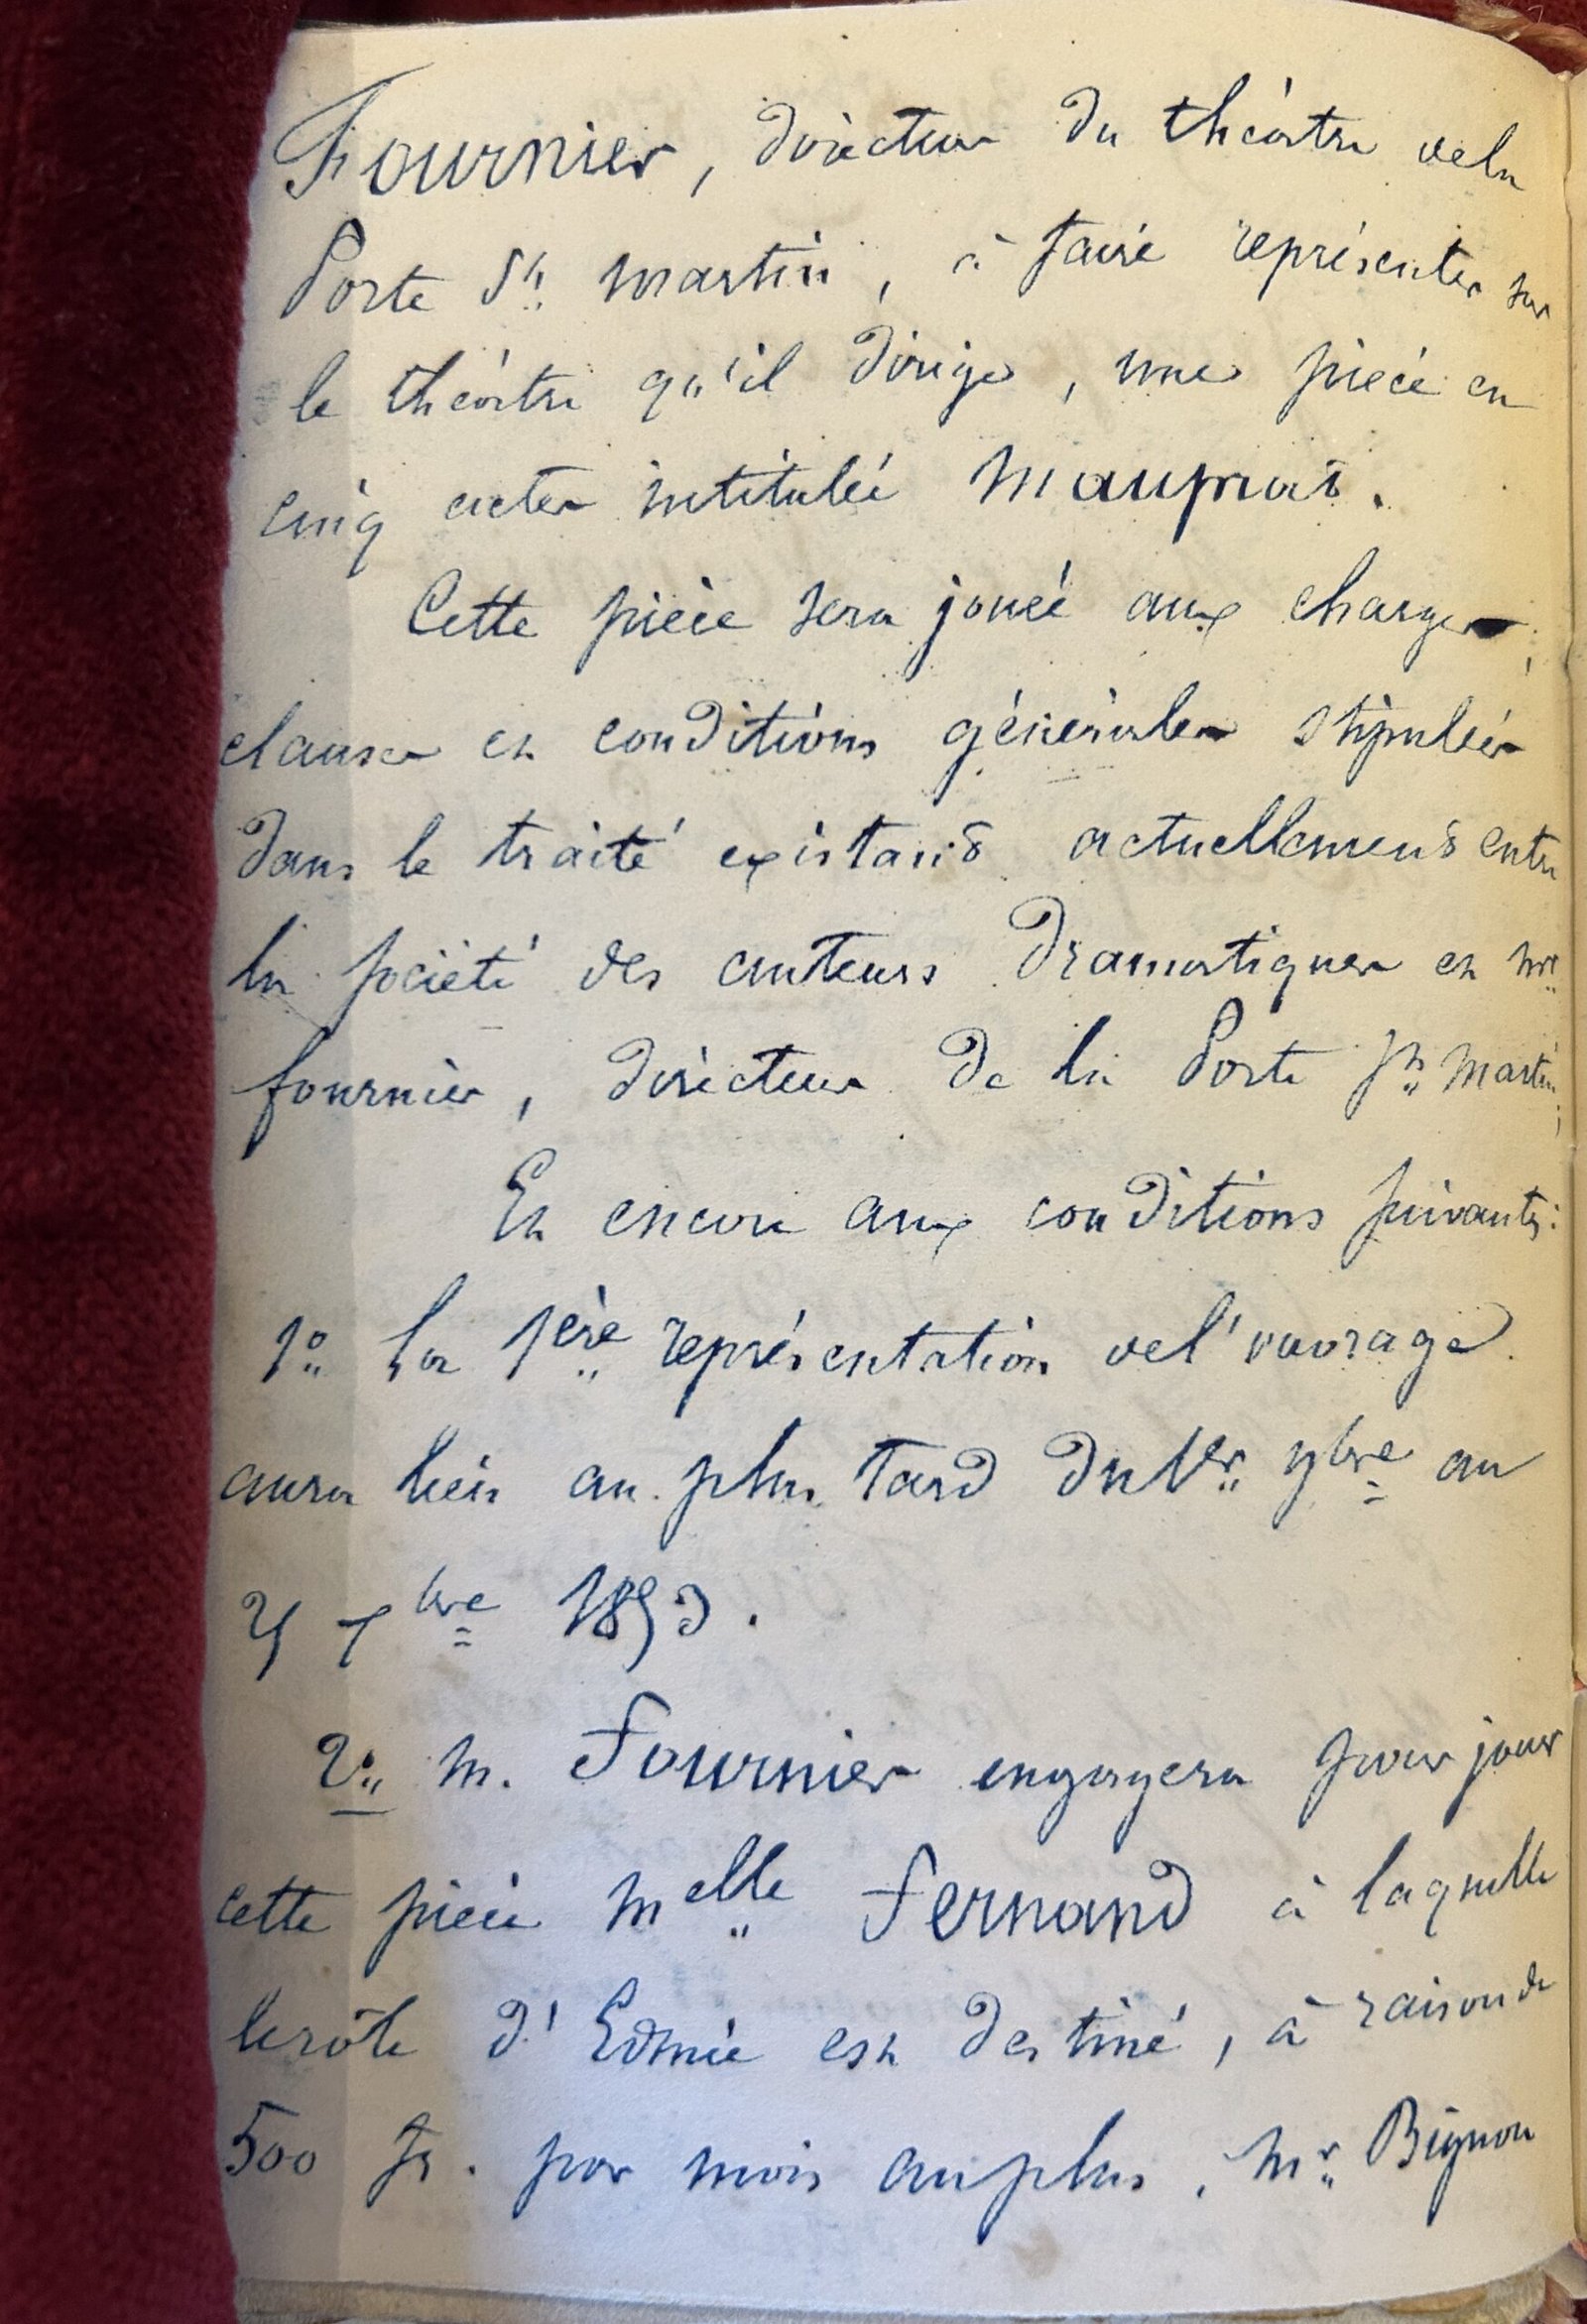 Fournier, directeur du théâtre de la
Porte St. Martin, à faire représenter sur
le théâtre qu'il dirige, une pièce en
cinq actes intitulée Mauprat.
Cette pièce sera jouée aux charges,
clauses et conditions générales stipulées
dans le traité existant actuellement entre
la société des auteurs dramatiques et Mr
fournier, directeur de la Porte St Martin;
Et encore aux conditions suivantes:
1o la 1ère représentation de l'ouvrage
aura lieu au plus tard du 1er 9bre au
Xbre 1853.
2o M. Fournier engagera pour jouer
cette pièce Melle Fernand à laquelle
le rôle d'Edmée est destiné, à raison de
500 fr. par mois au plus, Mr Bignon